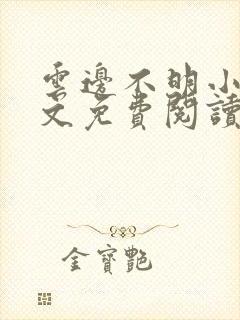 雲邊不明小
文免費閱讀
金寶艷